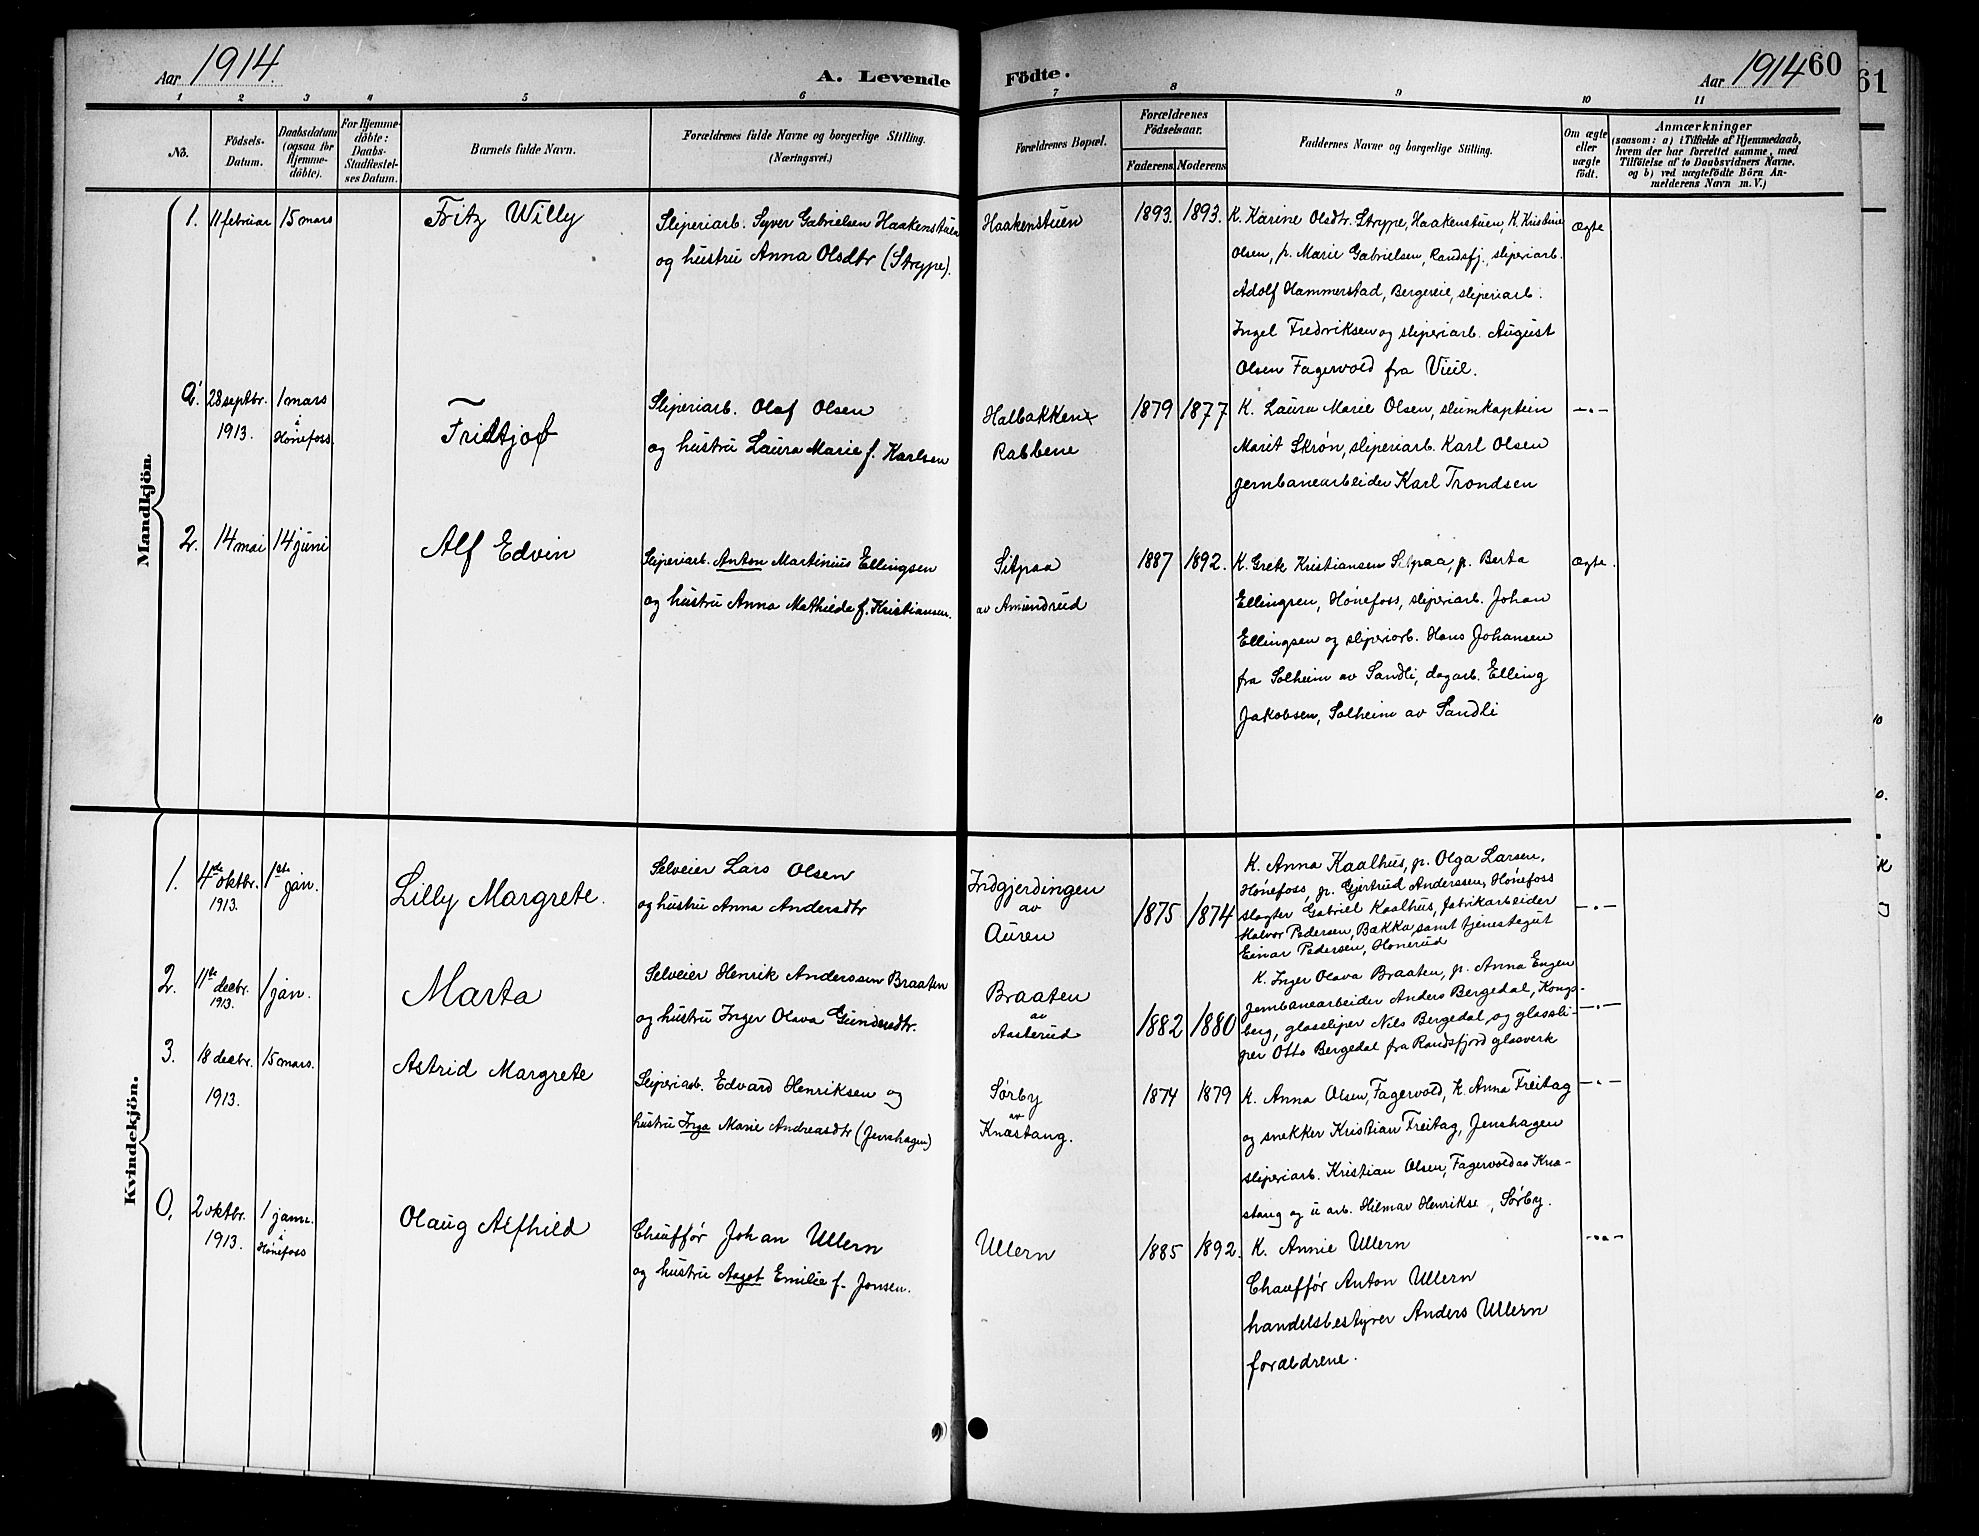 Aar 1914
A. Levende Födte.
Aar 1914 60
61
1 2 3 4 5 6 7 8 9 10 11
No.
Födsels-
Datum.
Daabsdatum
(ogsaa for
Hjemme-
döbte).
For Hjemme-
döbte:
Daabs-
Stadfæstel-
ses Datum.
Barnets fulde Navn.
Forældrenes fulde Navne og borgerlige Stilling.
(Næringsvei.)
Forældrenes Bopæl.
Forældrenes
Födselsaar.
Faderens. Moderens.
Faddernes Navne og borgerlige Stilling.
Om ægte
eller
uægte
födt.
Anmærkninger
(saasom: a) i Tilfælde af Hjemmedaab,
hvem der har forrettet samme, med
Tilföielse af to Daabsvidners Navne.
og b) ved uægtefödte Börn An-
melderens Navn m. V.)
Mandkjön
1. 11 februar 15 mars
Fritz Willy
Sliperiarb. Syver Gabrielsen Haakenstuen
og hustru Anna Olsdtr (Strype).
Haakenstuen
1893. 1893.
K. Karine Olsdtr. Strype, Haakenstuen, K. Kristine
Olsen, p. Marie Gabrielsen, Randsfj., sliperiarb.
Adolf Hammerstad, Bergereie, sliperiarb.
Ingel Fredriksen og sliperiarb. August
Olsen Fagervold fra Viul.
Ægte
28 septbr. 1 mars
1913. i
Hönefoss.
Fridtjof
Sliperiarb. Olaf Olsen
og hustru Laura Marie f. Karlsen
Halbakken
Rabbene
1879 1877
K. Laura Marie Olsen, slumkaptein
Marit Skrøn, sliperiarb. Karl Olsen
jernbanearbeider Karl Trondsen
— " —
2. 14 mai 14 juni
Alf Edvin
Sliperiarb. Anton Martinius Ellingsen
og hustru Anna Mathilde f. Kristiansen.
Sitpaa
av Amundrud
1887 1892.
K. Grete Kristiansen Sitpaa, p. Berta
Ellingsen, Hönefoss, sliperiarb. Johan
Ellingsen og sliperiarb. Hans Johansen
fra Solheim av Sandli, dagarb. Elling
Jakobsen, Solheim av Sandli
Ægte.
Kvindekjön.
1. 4de oktbr. 1ste jan.
1913.
Lilly Margrete.
Selveier Lars Olsen
og hustru Anna Andersdtr
Indgjerdingen
av
Auren
1875 1874
K. Anna Kaalhus, p. Olga Larsen,
Hönefoss, p. Gjertrud Anderssen, Hönefoss
slagter Gabriel Kaalhus, fabrikarbeider
Halvor Pedersen, Bakka samt tjenestegut
Einar Pedersen, Honerud
— " —
2. 11te decbr. 1 jan.
1913.
Marta
Selveier Henrik Anderssen Braaten
og hustru Inger Olava Gundersdtr.
Braaten
av
Aasterud
1882 1880
K. Inger Olava Braaten, p. Anna Engen
jernbanearbeider Anders Bergedal, Kongs-
berg, glassliper Nils Bergedal og glassli-
per Otto Bergedal fra Randsfjord glasverk
— " —
3. 18 decbr. 15 mars.
1913.
Astrid Margrete
Sliperiarb. Edvard Henriksen og
hustru Inga Marie Andreasdtr (Jenshagen)
Sørby
av
Knæstang.
1874 1879
K. Anna Olsen, Fagervold, K. Anna Freitag
og snekker Kristian Freitag, Jenshagen
sliperiarb. Kristian Olsen, Fagervold av Knæ-
stang og u arb. Hilmar Henrikse , Sørby.
— " —
0. 2 oktbr. 1 janr.
1913. i
Hönefoss
Olaug Alfhild
Chauffør Johan Ullern
og hustru Aagot Emilie f. Jonsen.
Ullern
1885 1892.
K. Annie Ullern
Chauffør Anton Ullern
handelsbestyrer Anders Ullern
forældrene.
— " —